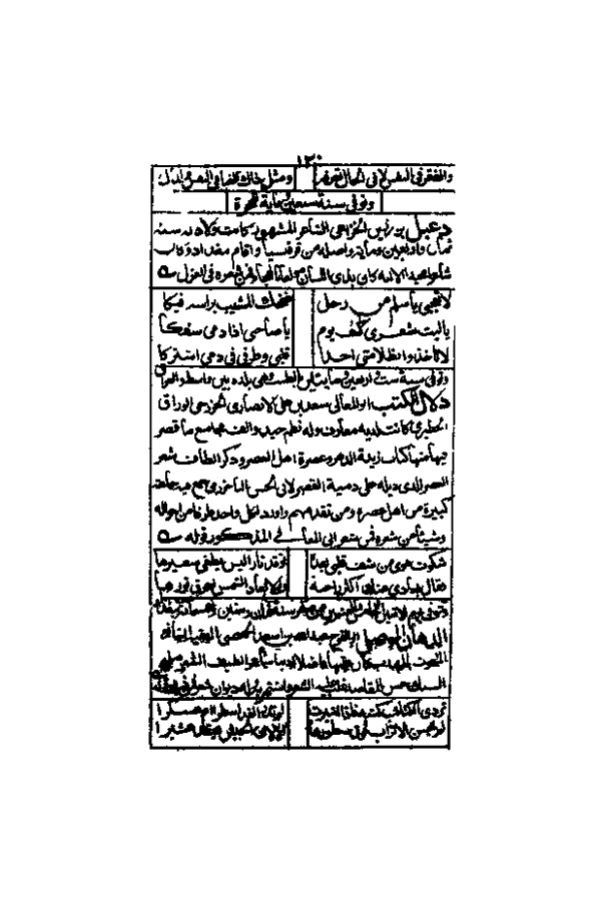 ١٢٠
والفقر في النفس لا في المال تعرفه ومثل ذاك الغنا في النفس
وتوفي سنة سبعين وماية
دعبل بن الخزاعي الشاعر المشهور كانت ولادته سنة
ثمان واربعين وماية واصله من قرقيسيا واقام ببغداد وكان
شاعرا الا انه كان بذي اللسان فمن شعره في الغزل
لا تعجبي يا سلم من رجل ضحك المشيب براسه فبكا
يا ليت شعري كيف يوم يا صاحبي اذا دمي سفكا
لا تاخذوا بظلامتي احدا قلبي وطرفي في دمي اشتركا
وتوفي سنة ست واربعين ومايتين بالطيب وهي بلدة بين واسط
دلال الكتب ابو المعالي سعد بن علي الانصاري الخزرجي الوراق
الحظيري كانت لديه معارف وله نظم جيد والف مجاميع ما قصر
فيها منها كتاب زينة الدهر وعصرة اهل العصر وذكر الطاف شعر
العصر الذي ذيله على دمية القصر لابي الحسن الباخرزي جمع فيه جماعة
كبيرة من اهل عصره ومن تقدمهم واورد لكل واحد طرفا من احواله
وشيئا من شعره فمن شعر ابي المعالي المذكور قوله
شكوت هوى من شف قلبي بعده توقد نار ليس يطفى سعيرها
فقال بعادي عنك اكثر راحة ولولا بعاد الشمس احرق نورها
الدهان الموصلي ابو الفرج عبد الله بن اسعد الحمصي الفقيه الشافعي
المنعوت بالمهذب كان فقيها فاضلا اديبا شاعرا لطيف الشعر مليح
السبك حسن المقاصد غلب عليه الشعر واشتهر به وله ديوان
تردي الكتائب كتبه فاذا انبرت لم تدر انفذ اسطرا ام عسكرا
لم يحسن الاتراب فوق سطورها الا لان الجيش يعقد عثيرا